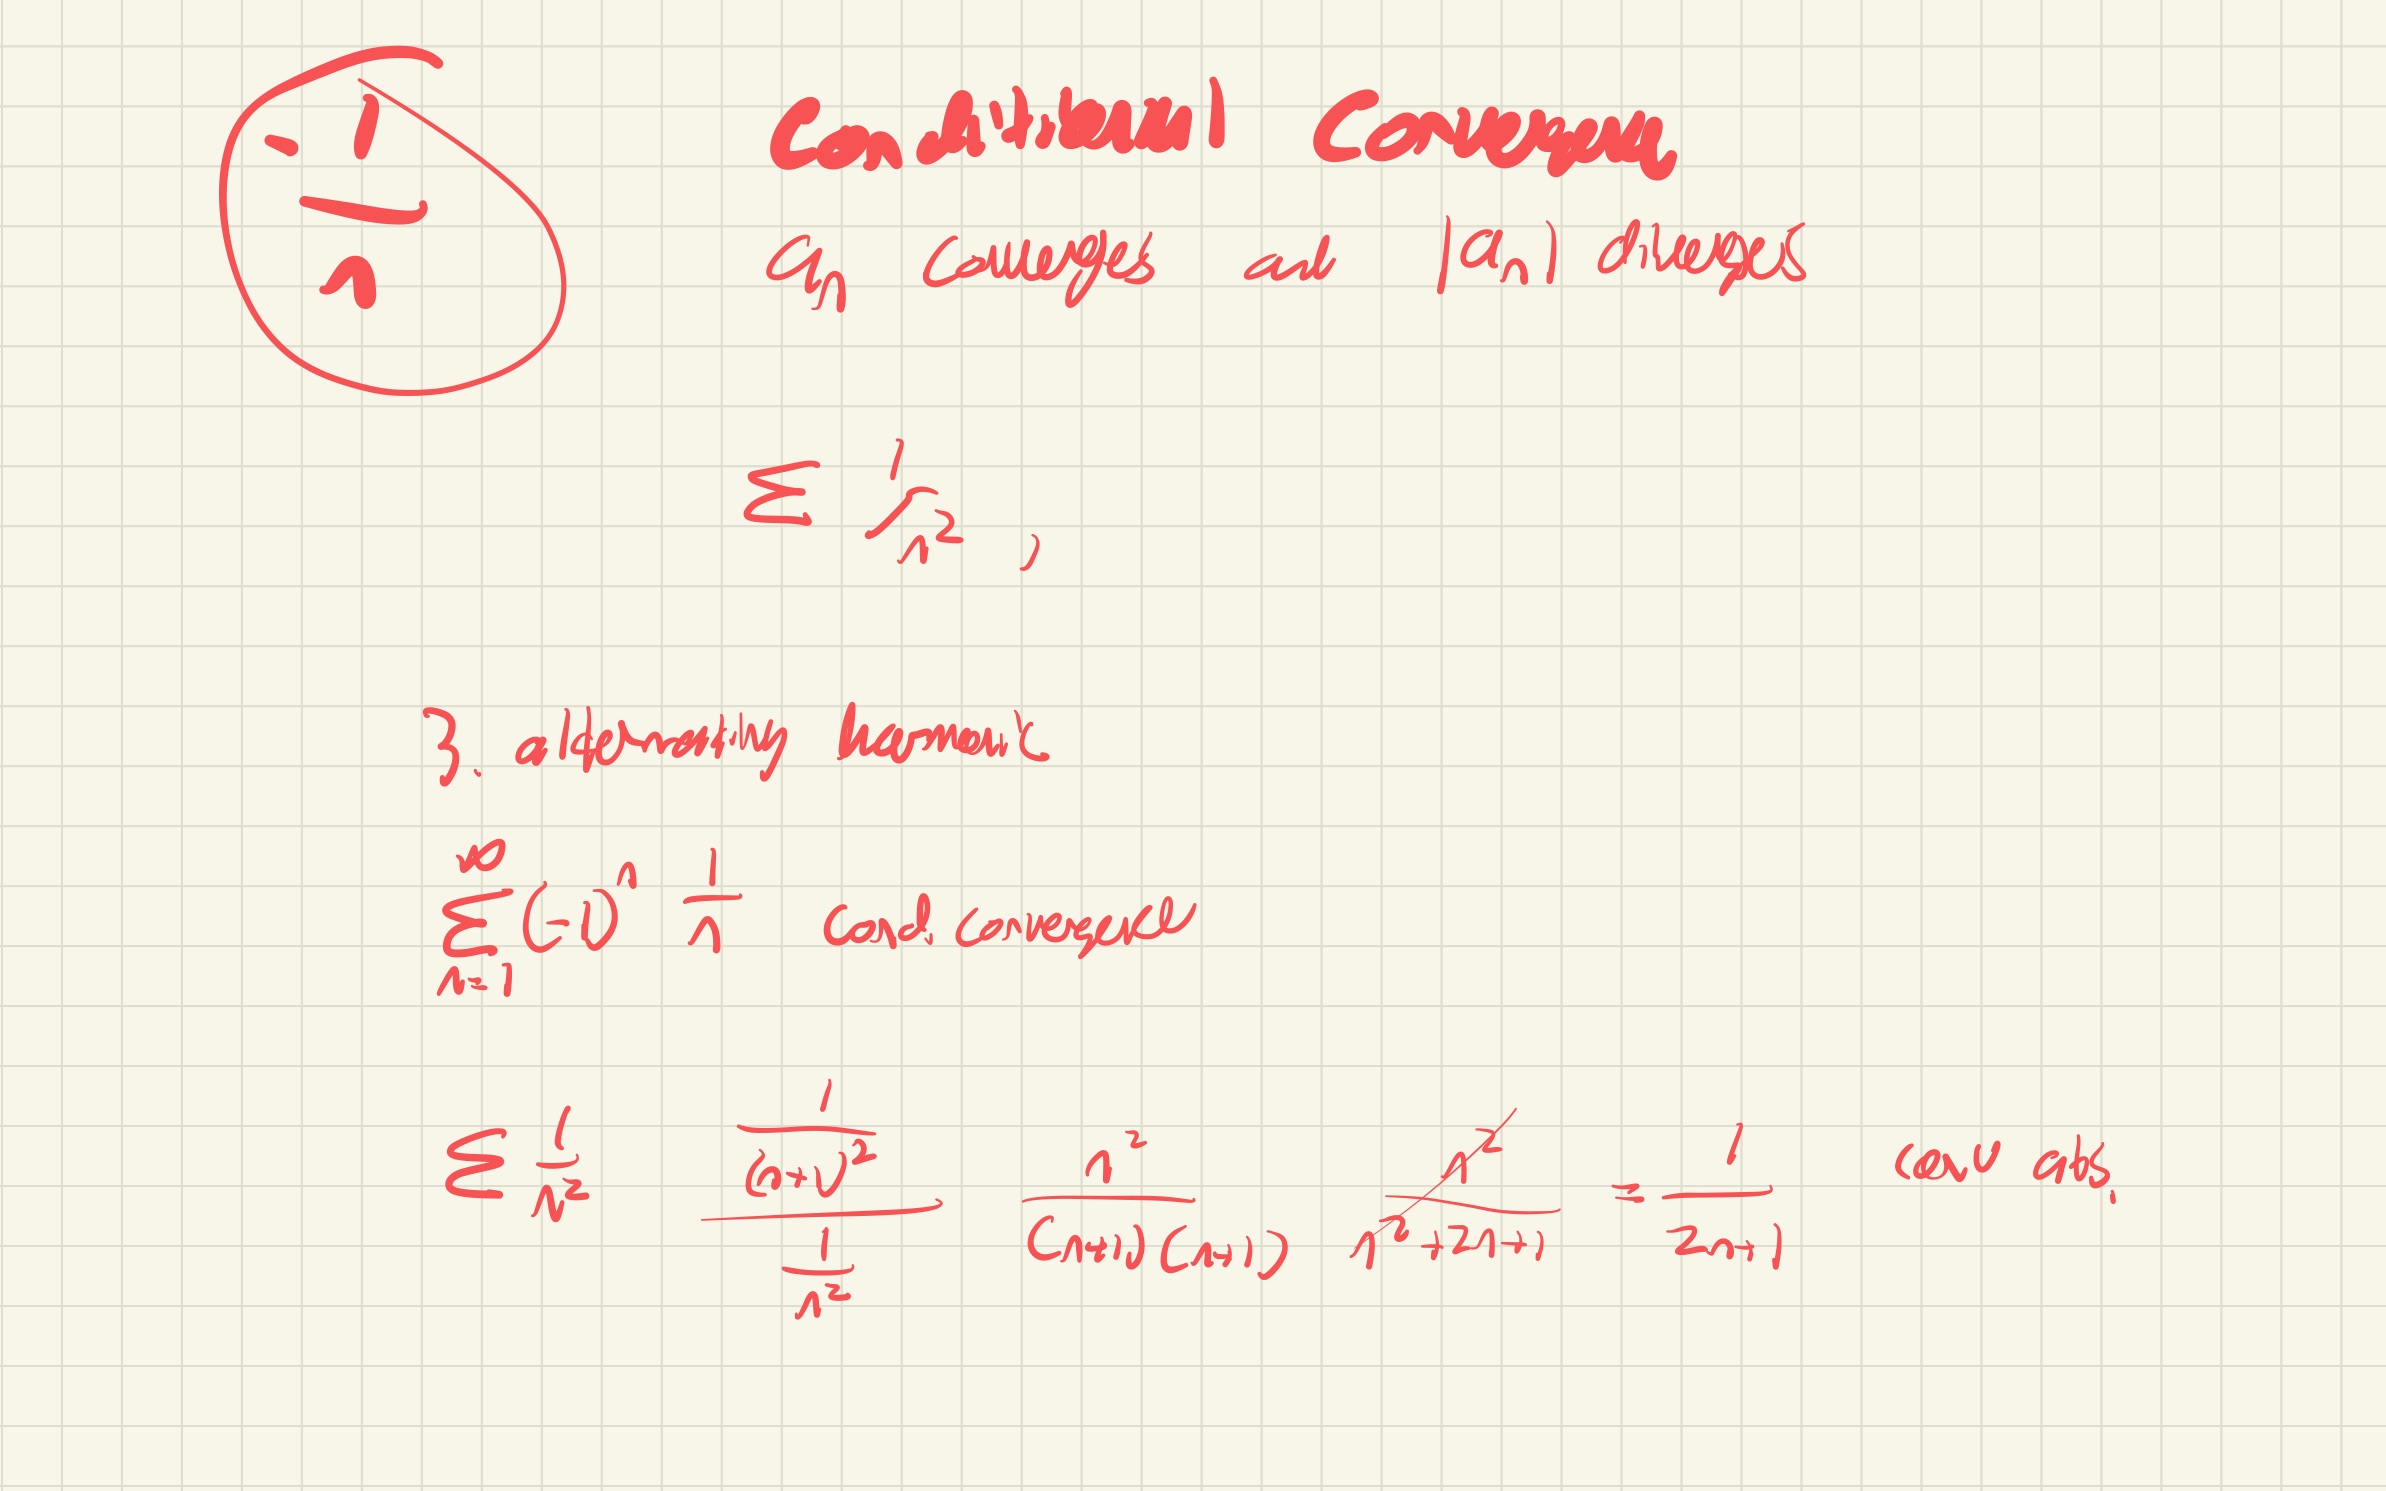 - 1/n
Conditional Convergence
an converges and |an| diverges
Σ 1/n² ,
3. alternating harmonic
∞ Σ n=1 (-1)ⁿ 1/n cond. convergence
Σ 1/n² (1/(n+1)²)/(1/n²) n²/((n+1)(n+1)) n²/(n²+2n+1) = 1/(2n+1) conv abs.